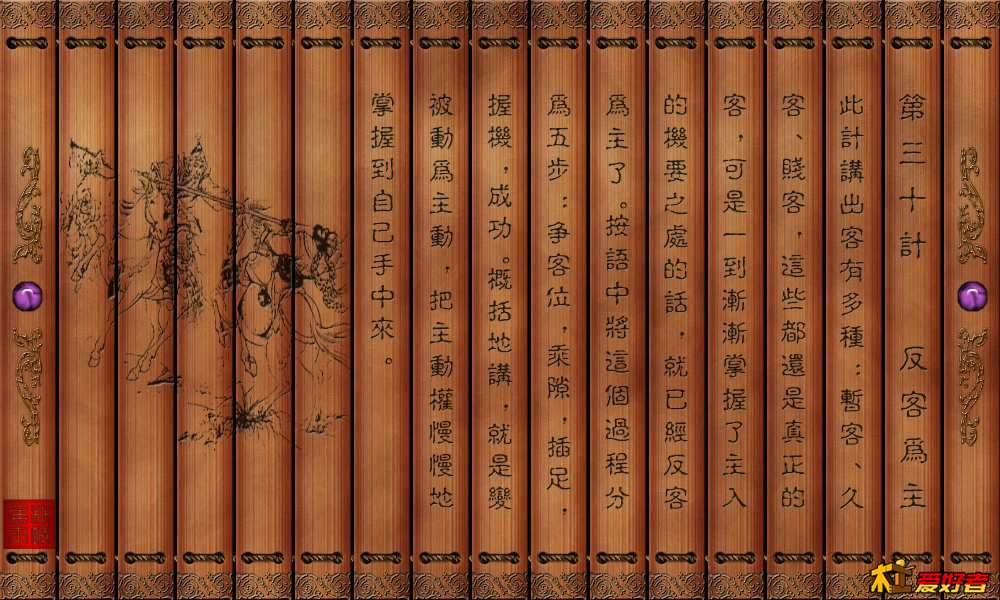 第三十計 反客爲主
此計講出客有多種：暫客、久
客、賤客，這些都還是真正的
客，可是一到漸漸掌握了主人
的機要之處的話，就已經反客
爲主了。按語中將這個過程分
爲五步：争客位，乘隙，插足，
握機，成功。概括地講，就是變
被動爲主動，把主動權慢慢地
掌握到自己手中來。
愛好者